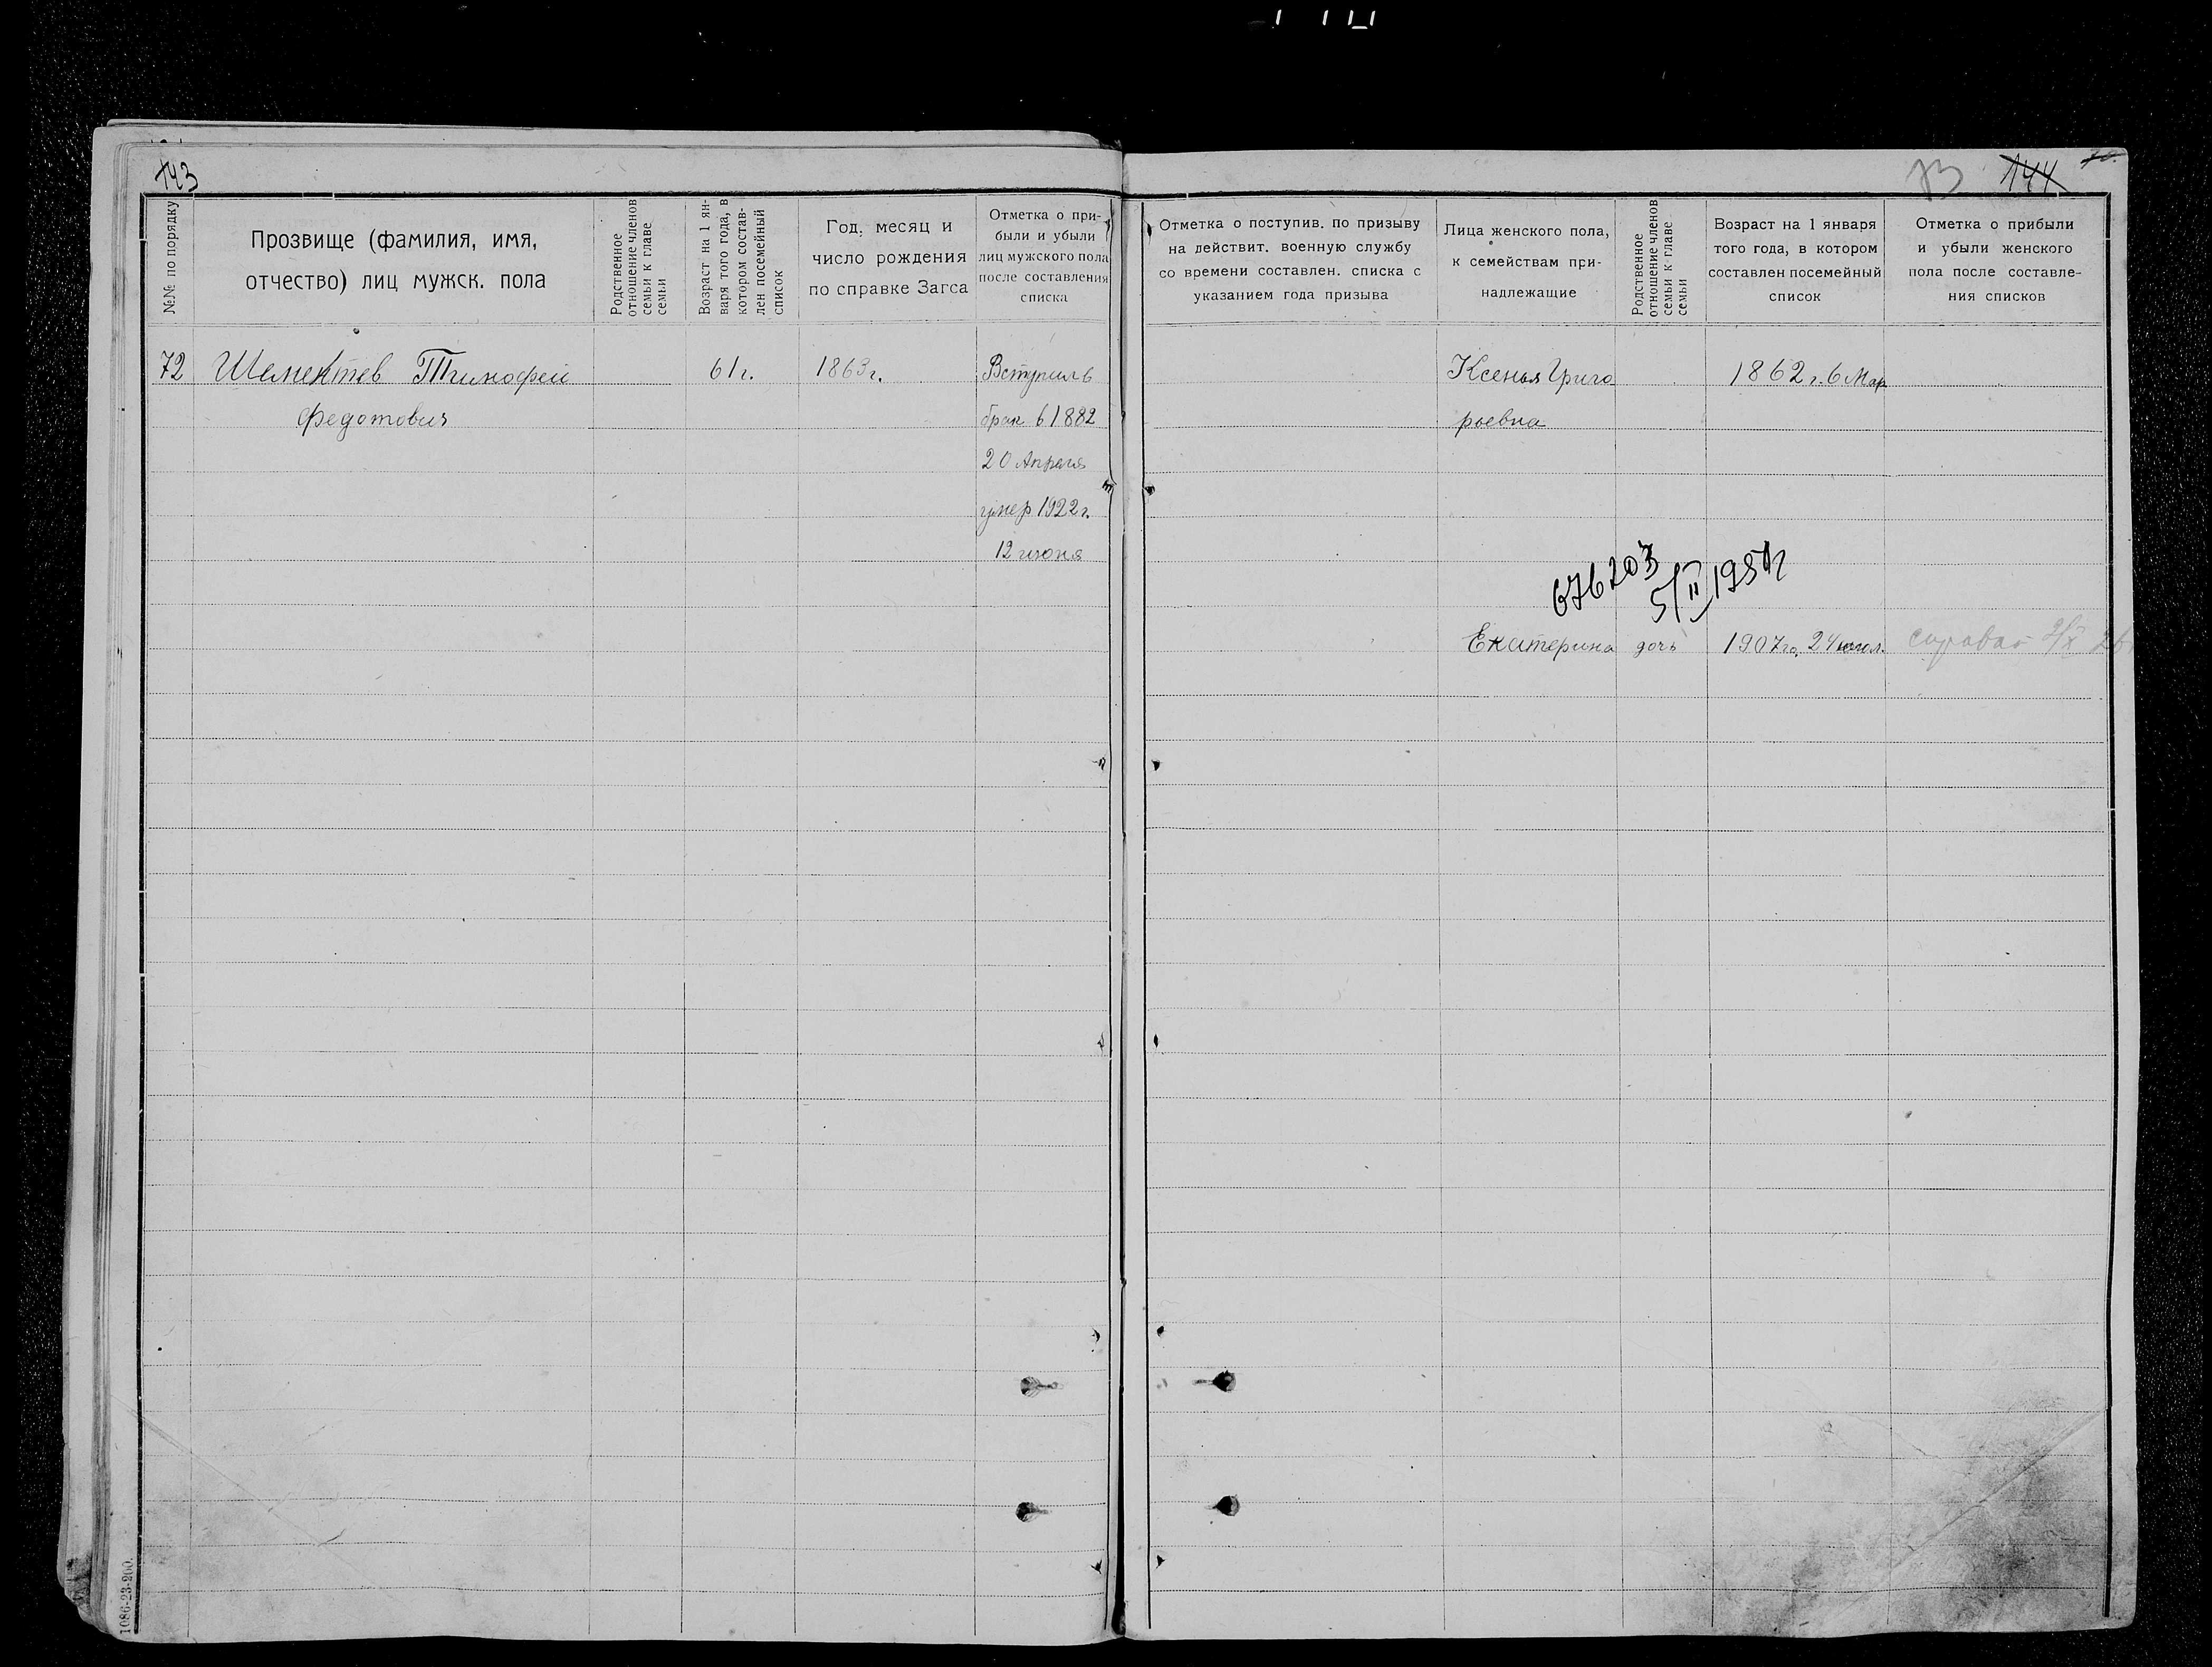 143
№№ по порядку
Прозвище (фамилия, имя,
отчество) лиц мужск. пола
Родственное
отношение членов
семьи к главе
семьи
Возраст на 1 ян-
варя того года, в
котором состав-
лен посемейный
список
Год, месяц и
число рождения
по справке Загса
Отметка о при-
были и убыли
лиц мужского пола
после составления
списка
72 Шелектев Тимофей 61 г. 1863 г. Вступил в
Федотович брак в 1882
20 Апреля
умер 1922 г.
12 июня
1086-23-200.
73 144 70.
Отметка о поступив. по призыву
на действит. военную службу
со времени составлен. списка с
указанием года призыва
Лица женского пола,
к семействам при-
надлежащие
Родственное
отношение членов
семьи к главе
семьи
Возраст на 1 января
того года, в котором
составлен посемейный
список
Отметка о прибыли
и убыли женского
пола после составле-
ния списков
Ксенья Григо 1862 г. 6 Мар
рьевна
676203
5/II 195
Екатерина дочь 1907 го, 24 июл.